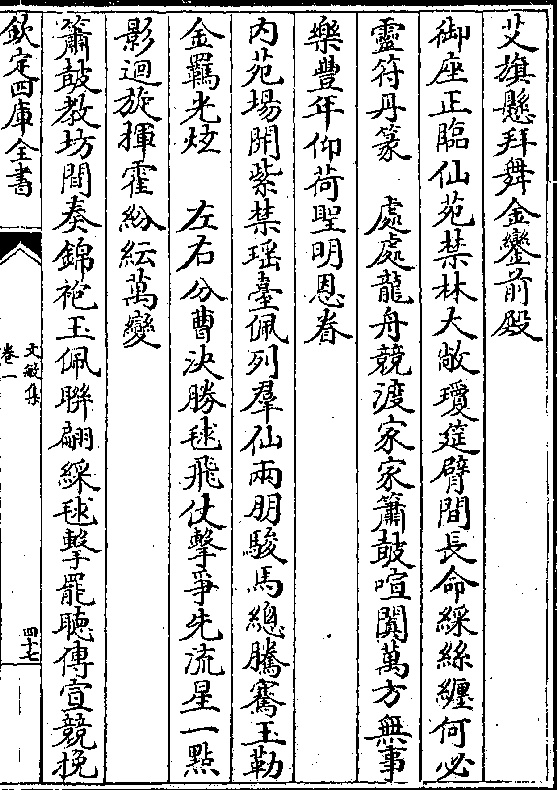 艾旗懸拜舞金鑾前殿
御座正臨仙苑禁林大敞瓊筵臂間長命綵絲纒何必
靈符丹篆　處處龍舟競渡家家簫鼓喧闐萬方無事
樂豐年仰荷聖明恩眷
内苑場開紫禁瑶臺佩列羣仙兩朋駿馬總騰鶱玉勒
金羈光炫　左右分曹決勝毬飛仗擊爭先流星一點
影迴旋揮霍紛紜萬變
簫鼓教坊間奏錦袍玉佩聯翩綵毬擊罷聽傳宣競挽
欽定四庫全書
文敏集
卷一
四十七